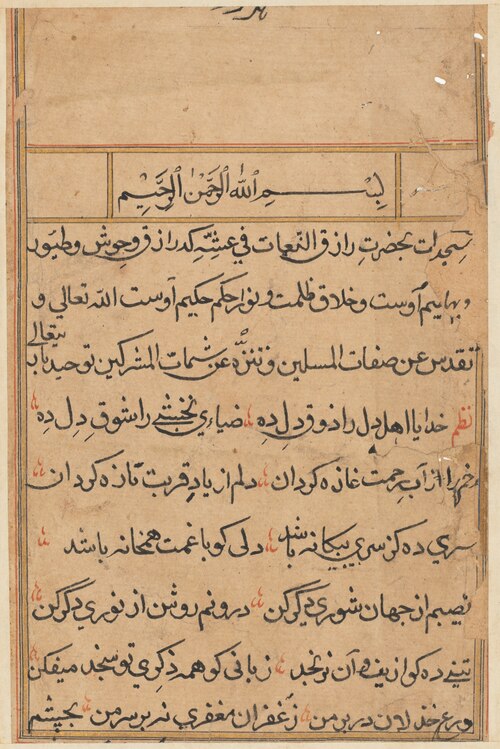 بسم الله الرحمن الرحيم
سجدات بحضرت رازق النعمات في عشقه که رازق وحوش و طيور
و بهايم اوست و خلاق ظلمت و نور حکم حکيم اوست الله تعالي و
تقدس عن صفات المسلين و تنزه عن شمات المشرکين توحيد باب
يتعالى
نظم خدايا اهل دل را ذوق دل ده ضياءي نخشبي را شوق دل ده
از آب رحمت غازه کردان دلم از ياد قربت تازه کردان
سري ده کز سري بيکانه باشد دلي کو با غمت همخانه باشد
نصيبم از جهان شوري دکر کن درونم روشن از نوري دکر کن
ده کو از آن نرنجد زباني کو همه ذکري تو سنجد ميفکن
درع خذلان در بر من ز غفران مغفري نه بر سر من بچشم